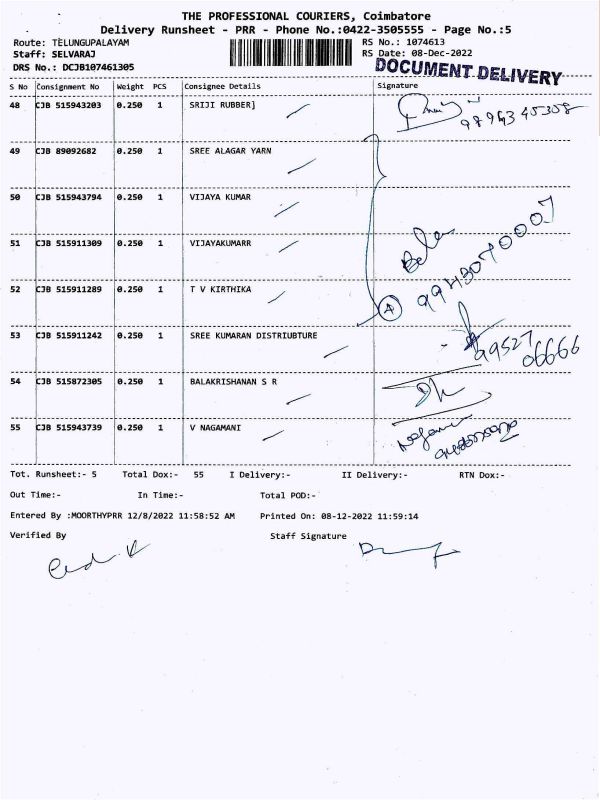 THE PROFESSIONAL COURIERS, Coimbatore
Delivery Runsheet - PRR - Phone No.:0422-3505555 - Page No.:5
Route: TELUNGUPALAYAM
Staff: SELVARAJ
DRS No.: DCJB107461305
RS No.: 1074613
RS Date: 08-Dec-2022
DOCUMENT DELIVERY
S No Consignment No Weight PCS Consignee Details Signature
48 CJB 515943203 0.250 1 SRIJI RUBBER]
49 CJB 89092682 0.250 1 SREE ALAGAR YARN
50 CJB 515943794 0.250 1 VIJAYA KUMAR
51 CJB 515911309 0.250 1 VIJAYAKUMARR
52 CJB 515911289 0.250 1 T V KIRTHIKA
Bala
A
53 CJB 515911242 0.250 1 SREE KUMARAN DISTRIUBTURE
99527
06666
54 CJB 515872305 0.250 1 BALAKRISHANAN S R
55 CJB 515943739 0.250 1 V NAGAMANI
Tot. Runsheet:- 5 Total Dox:- 55 I Delivery:- II Delivery:- RTN Dox:-
Out Time:- In Time:- Total POD:-
Entered By :MOORTHYPRR 12/8/2022 11:58:52 AM Printed On: 08-12-2022 11:59:14
Verified By Staff Signature